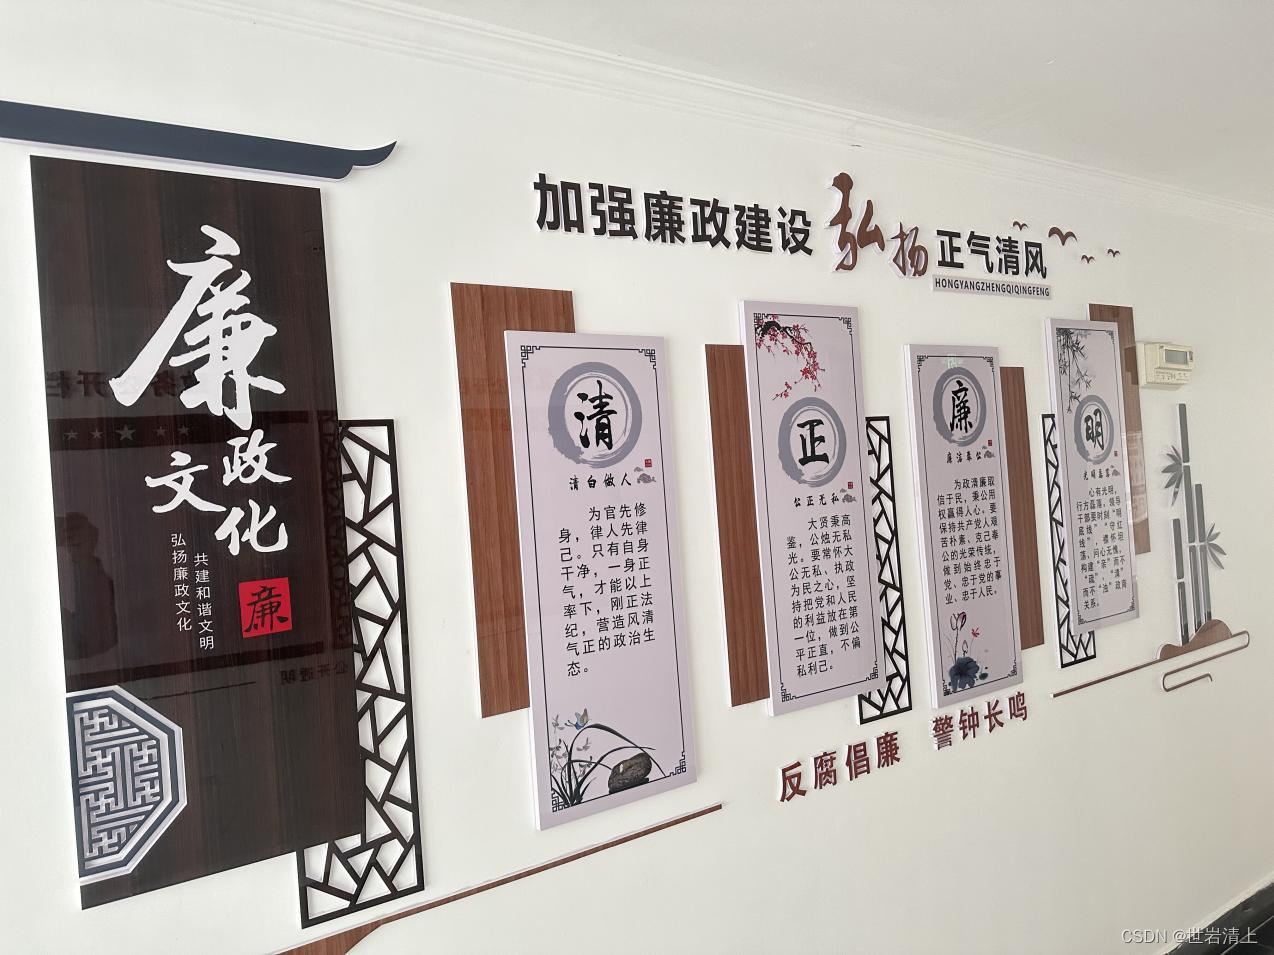 加强廉政建设 弘扬 正气清风
HONGYANGZHENGQIQINGFENG
廉
政
文化
弘扬廉政文化
共建和谐文明
廉
清
清白做人
为官先修
身，律人先律
己。只有自身
干净，一身正
气，才能以上
率下，刚正法
纪，营造风清
气正的政治生
态。
正
公正无私
大贤秉高
鉴，公烛无私
光。要常怀大
公无私、执政
为民之心，坚
持把党和人民
的利益放在第
一位，做到公
平正直，不偏
私利己。
廉
廉洁奉公
为政清廉取
信于民，秉公用
权赢得人心。要
保持共产党人艰
苦朴素、克己奉
公的光荣传统，
做到始终忠于
党、忠于党的事
业、忠于人民。
明
光明磊落
心有光明，
行方磊落，领导
干部要时刻“明
底线”，“守红
线”，襟怀坦
荡，问心无愧，
构建“亲”而不
“疏”，“清”
而不“浊”政商
关系。
反腐倡廉 警钟长鸣
CSDN @世岩清上